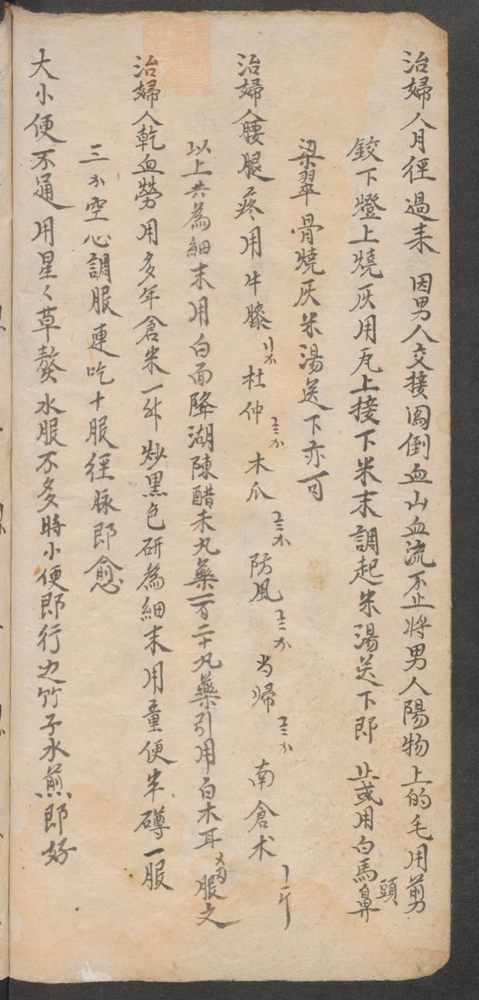 治婦人月径過来因男人交接閙倒血山血流不止将男人陽物上的毛用剪
鉸下燈上燒灰用瓦上接下米末調起米湯送下即止或用白馬頭鼻
梁翠骨燒灰米湯送下亦可
治婦人腰腿疼用牛膝 杜仲 木瓜 防風 当帰 南倉木
以上共為細末用白面降湖陳醋未丸藥一百二十丸藥引用白木耳 服之
治婦人乾血勞用多年倉米一 炒黒色研為細末用童便半磚一服
三 空心調服連吃十服徑脉即愈
大小便不通用星々草熬水服不多時小便即行也竹子水煎即好